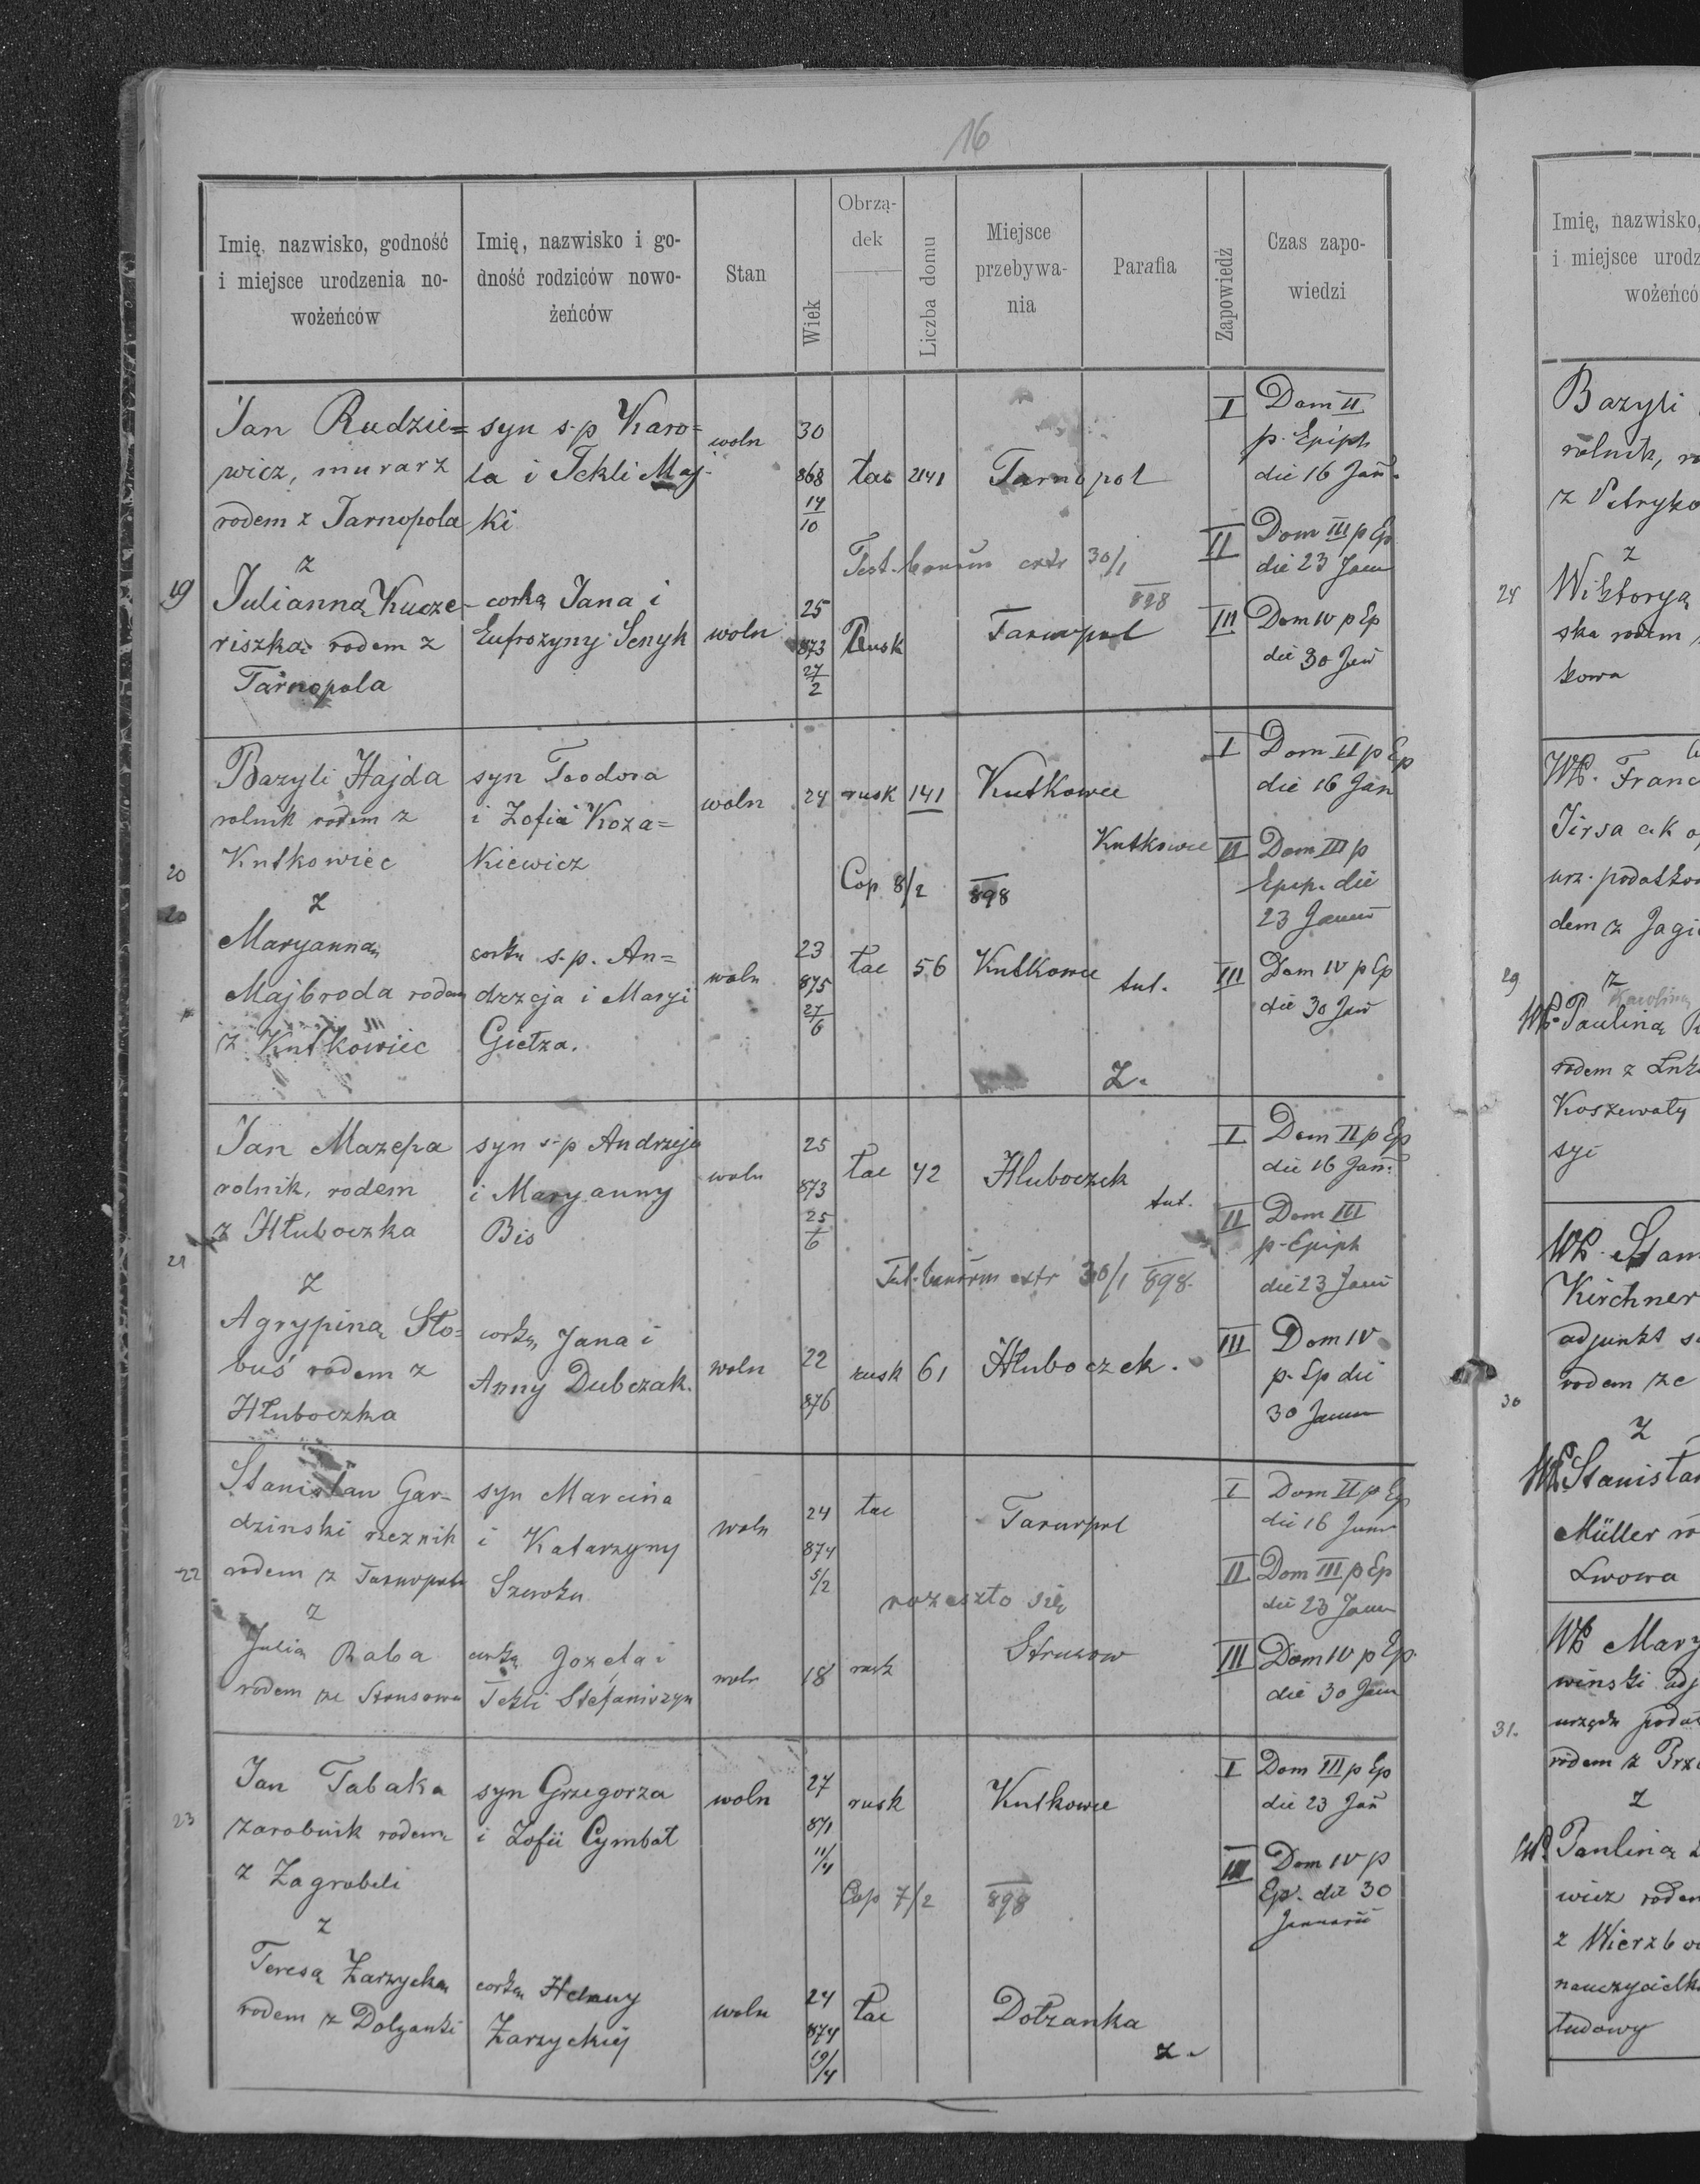 16
Imię, nazwisko, godność i miejsce urodzenia no-wożeńców
Imię, nazwisko i go-dność rodziców nowo-żeńców
Stan
Wiek
Obrzą-dek
Liczba domu
Miejsce przebywa-nia
Parafia
Zapowiedź
Czas zapo-wiedzi
19
Jan Rudzie=
wicz, murarz
rodem z Tarnopola
z
Julianną Kucze-
riszką rodem z
Tarnopola
syn s.p Karo=
la i Tekli Maj-
ki
corką Jana i
Eufrozyny Senyk
woln
woln
30
868
14/10
25
873
27/2
łac 2141 Tarnopol
Test. bannum extr 30/1 898
Rusk Tarnopol
I Dom II
p. Epiph
die 16 Jan.
II Dom III p Ep
die 23 Janu
III Dom IV p Ep
die 30 Jan
20
20
Bazyli Hajda
rolnik rodem z
Kutkowiec
z
Maryanną
Majbroda rodem
z Kutkowiec
syn Teodora
i Zofia Koza=
kiewicz
corką s.p. An=
drzeja i Maryi
Giełza.
woln
woln
24
23
875
27/6
rusk 141 Kutkowce
Kutkowce
Cop 8/2 898
łac 56 Kutkowce tut.
Z.
I Dom II p Ep
die 16 Jan
II Dom III p
Epip. die
23 Januar
III Dom IV p Ep
die 30 Jan
21
Jan Mazepa
rolnik, rodem
z Hłuboczka
z
Agrypiną Sło=
buś rodem z
Hłuboczka
syn s-p Andrzeja
i Maryanny
Bis
corką Jana i
Anny Dubczak.
woln
woln
25
873
25/6
22
876
łac 42 Hluboczek
tut.
Test. bannum extr 30/1 898.
rusk 61 Hłuboczek.
I Dom II p Ep
die 16 Jan.
II Dom III
p-Epiph
die 23 Janu
III Dom IV
p. Ep die
30 Januar
22
Stanisław Gar-
dzinski rzeznik
rodem z Tarnopola
z
Julią Raba
rodem ze Strusowa
syn Marcina
i Katarzyny
corką Jozefa i
Tekli Stefaniszyn
woln
woln
24
874
5/2
18
łac Tarnopol
rozeszło się
rusk Strusow
I Dom II p Ep
die 16 Janu
II Dom III p Ep
die 23 Janu
III Dom IV p Ep.
die 30 Janu
23
Jan Tabaka
zarobnik rodem
z Zagrobeli
z
Teresą Zarzycką
rodem z Dołzanki
syn Grzegorza
i Zofii Cymbał
corką Heleny
Zarzyckiej
woln
woln
27
871
11/4
24
874
19/4
rusk Kutkowce
Cop 7/2 898
łac Dołzanka
z.
I Dom III p Ep
die 23 Jan
III Dom IV p
Ep. die 30
Januarii
Imię, nazwisko,
i miejsce urodz
wożeńcó
24
Bazyli
rolnik,
z Petryko
z
Wiktoryą
ska rodem
kowa
29
WP. Franc
Jirsa c.k
urz. podatkow
dem z Jagi
z
Karoliną
WP. Pauliną
rodem z
Koszewaty
syi
30
WP. Stan
Kirchner
adjunkt
rodem ze
z
WP Stanisław
Müller
Lwowa
31.
WP Mary
winski adj
urzędu podat
rodem z Prze
z
WP. Pauliną
wicz rodem
z Wierzbo
nauczycielk
ludowy